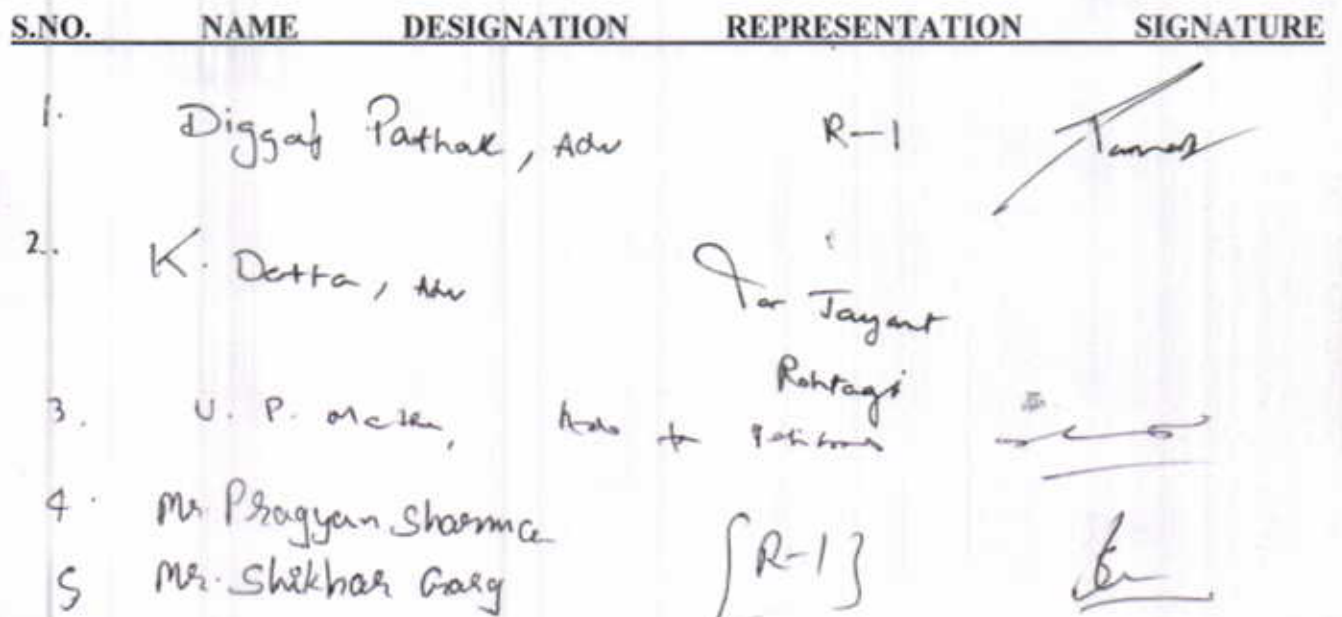 S.NO. NAME DESIGNATION REPRESENTATION SIGNATURE
1. Diggaj Pathak, Adv R-1
2. K. Datta, Adv for Jayant
Rohtagi
3. U. P. Adv for Petitioner
4. Mr. Pragyan Sharma [R-1]
5 Mr. Shikhar Garg